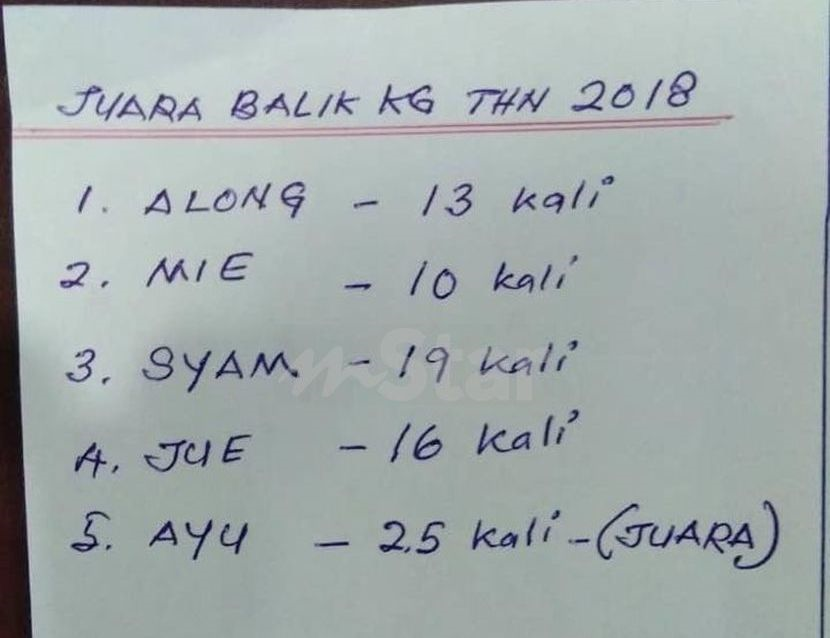 JUARA BALIK KG THN 2018
1. ALONG - 13 kali
2. MIE - 10 kali
3. SYAM - 19 kali
4. JUE - 16 kali
5. AYU - 25 kali - (JUARA)
mStar